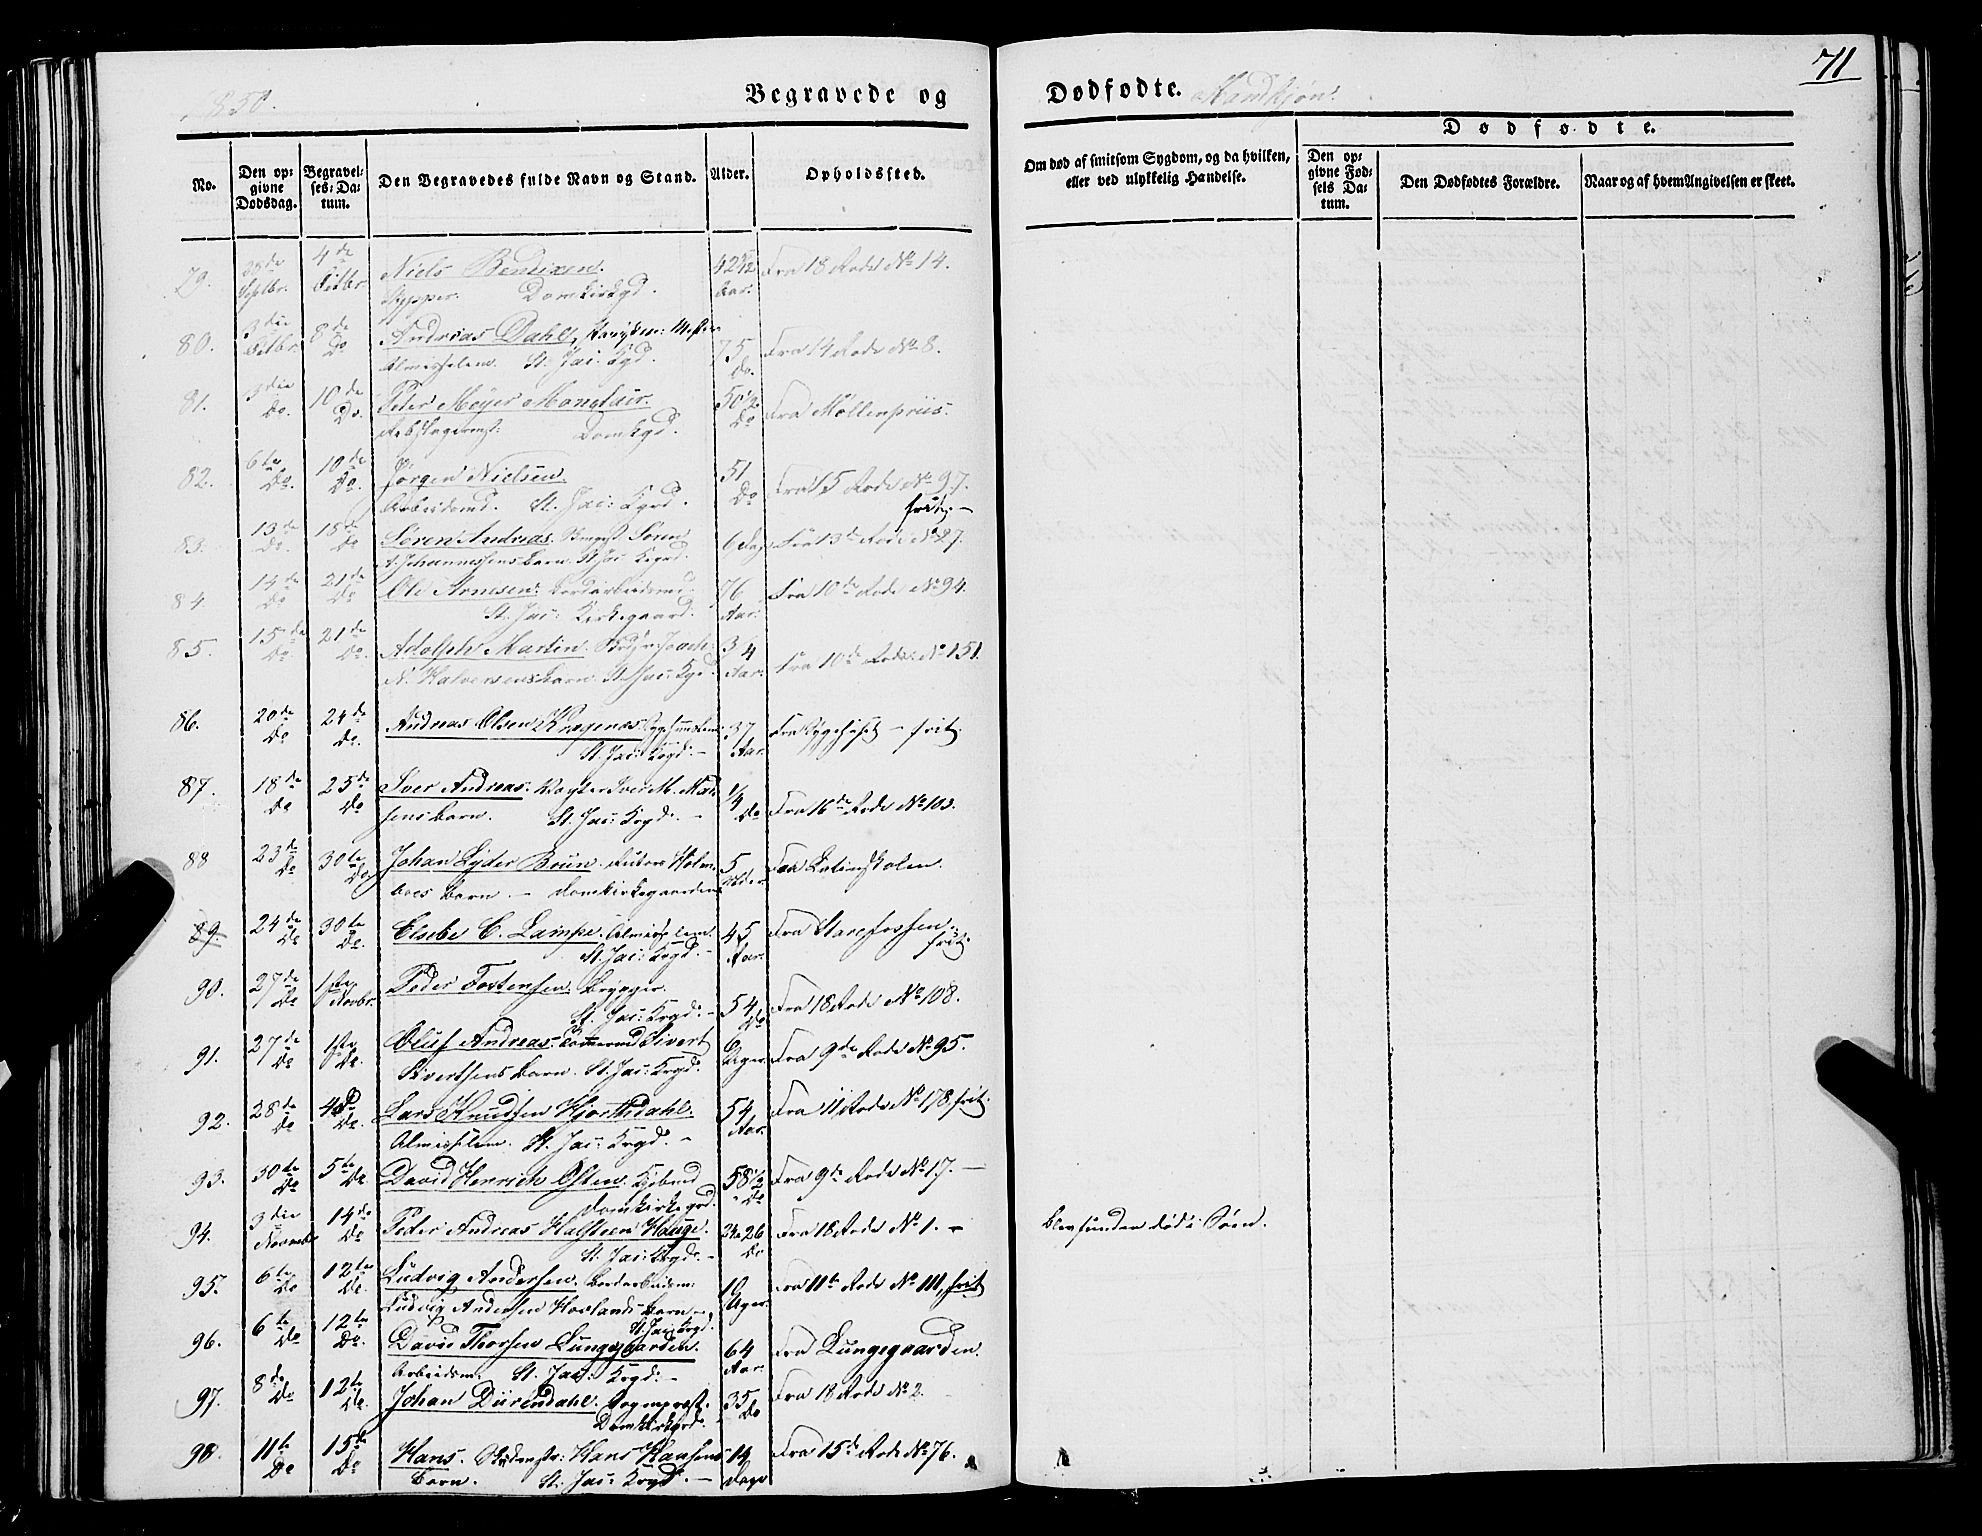 1850.
Begravede og
Dødfødte. Mandkjøn.
71
No.
Den op-
givne
Dødsdag.
Begravel-
ses-Da-
tum.
Den Begravedes fulde Navn og Stand.
Alder.
Opholdssted.
Om død af smitsom Sygdom, og da hvilken,
eller ved ulykkelig Hændelse.
Dødfødte.
Den op-
givne Fød-
sels Da-
tum.
Den Dødfødtes Forældre.
Naar og af hvem Angivelsen er skeet.
79. 28de 4de Niels Bendixen. 42 Fra 18 Rode No 14.
Septbr. Octbr. Skipper. Domkirkgd. Aar.
80. 3die 8de Andreas Dahl,
Octbr. Do Almisselem. St. Jac: Kgd. 75 Do. Fra 14 Rode No 8.
81. 3die 10de Peter Meyer 50 1/2 Fra Møllenpriis.
Do. Do. Rebslagermst: Domkgd. Do
82. 6te 10de Jørgen Nielsen. 51 Fra 15 Rode No 97.
Do. Do. Arbeidsmd. St. Jac: Kgrd. Do frit. –
83. 13de 15de Søren Andreas. Søren 6 Dage Fra 13de Rode No 27.
Do. Do A. Johannessens Barn. St. Jac Kgrd.
84. 14de 21de Ole Arnesen: Bordarbeidsmd. 76 Fra 10de Rode No 94.
Do Do St. Jac: Kirkegaard. Aar.
85. 15de 21de Adolph Martin. 3/4 Fra 10de Rode No 151.
Do. Do. N. Halvorsens Barn. St. Jac: Kgd. Aar.
86. 20de 24de Andreas Olsen 37 Fra Sygehuset – frit.
Do Do. St. Jac: Krgd. – Aar.
87. 18de 25de Iver Andreas. Iver M. Mad- 1/4
Do Do sens Barn. St. Jac: Krgd. – Do Fra 16de Rode No 103.
88 23de 30te Johan Lyder Brun. Rector Holm- 5 Fra Latinskolen.
Do Do boes Barn. – Domkirkegaarden
89. 24de 30te Elsebe C. Lampe. Almisselem. 45 Fra Storefossen.
Do Do. St. Jac: Krgd. – Aar. frit.
90. 27de 1ste Peder Tostensen. Brygger.
Do Novbr. St. Jac: Krgd. – 54 Do Fra 18 Rode No 108.
91. 27de 1ste Oluf Andreas. Sivert 6 Uger Fra 9de Rode No 95.
Do Do. Sivertsens Barn. St. Jac: Krgd.
92. 28de 4de Lars Knudsen Hjorthdahl. 54 Fra 11 Rode No 178, frit.
Do Do. Almisselem. St. Jac: Krgd. – Aar.
93. 30te 5te David Henrich Osten. Kjøbmd 58 1/2 Fra 9de Rode No 17. –
Do Do Domkirkegrd. Do
94. 3die 14de Peder Andreas Halfsteen Hauge. 26 Fra 18 Rode No 1. – blev funden død i Søen.
Novembr Do St. Jac: Krgd. – Do
95. 6te 12te Ludvig Andersen. Bordarbeidsm: 10 Fra 11te Rode No 111, frit
Do Do. Ludvig Andersen Hovlands Barn – Uger.
St. Jac: Krgd.
96. 6te 12te David Thorsen Lungegaarden. 64 Fra Lungegaarden.
Do Do. Arbeidsm. St. Jac: Krgd. – Aar.
97. 8de 12te Johan Dürendahl. Sogneprest. 35 Fra 18 Rode No 2.
Do Do. Domkirkgrd. – Do
98. 11te 15de Hans. Hans Hansens 14 Fra 15de Rode No 76.
Do Do Barn. St. Jac: Krgd. – Dage